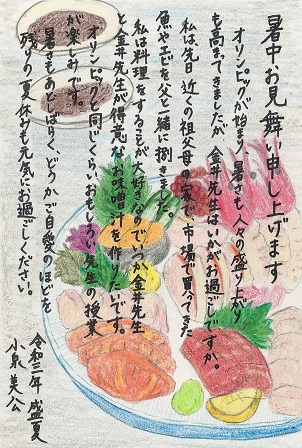 暑中お見舞い申し上げます
オリンピックが始まり、暑さも人々の盛り上がり
も高まってきましたが 金井先生はいかがお過ごしですか。
私は先日 近くの祖父母の家で、市場で買ってきた
魚やエビを父と一緒に捌きました。
私は料理をすることが大好きなので、いつか金井先生
と金井先生が得意なお味噌汁を作りたいです。
オリンピックと同じくらいおもしろい先生の授業
が楽しみです。
暑さもあとしばらく、どうかご自愛のほどを
残りの夏休みも元気にお過ごしください。
令和三年 盛夏
小泉美公